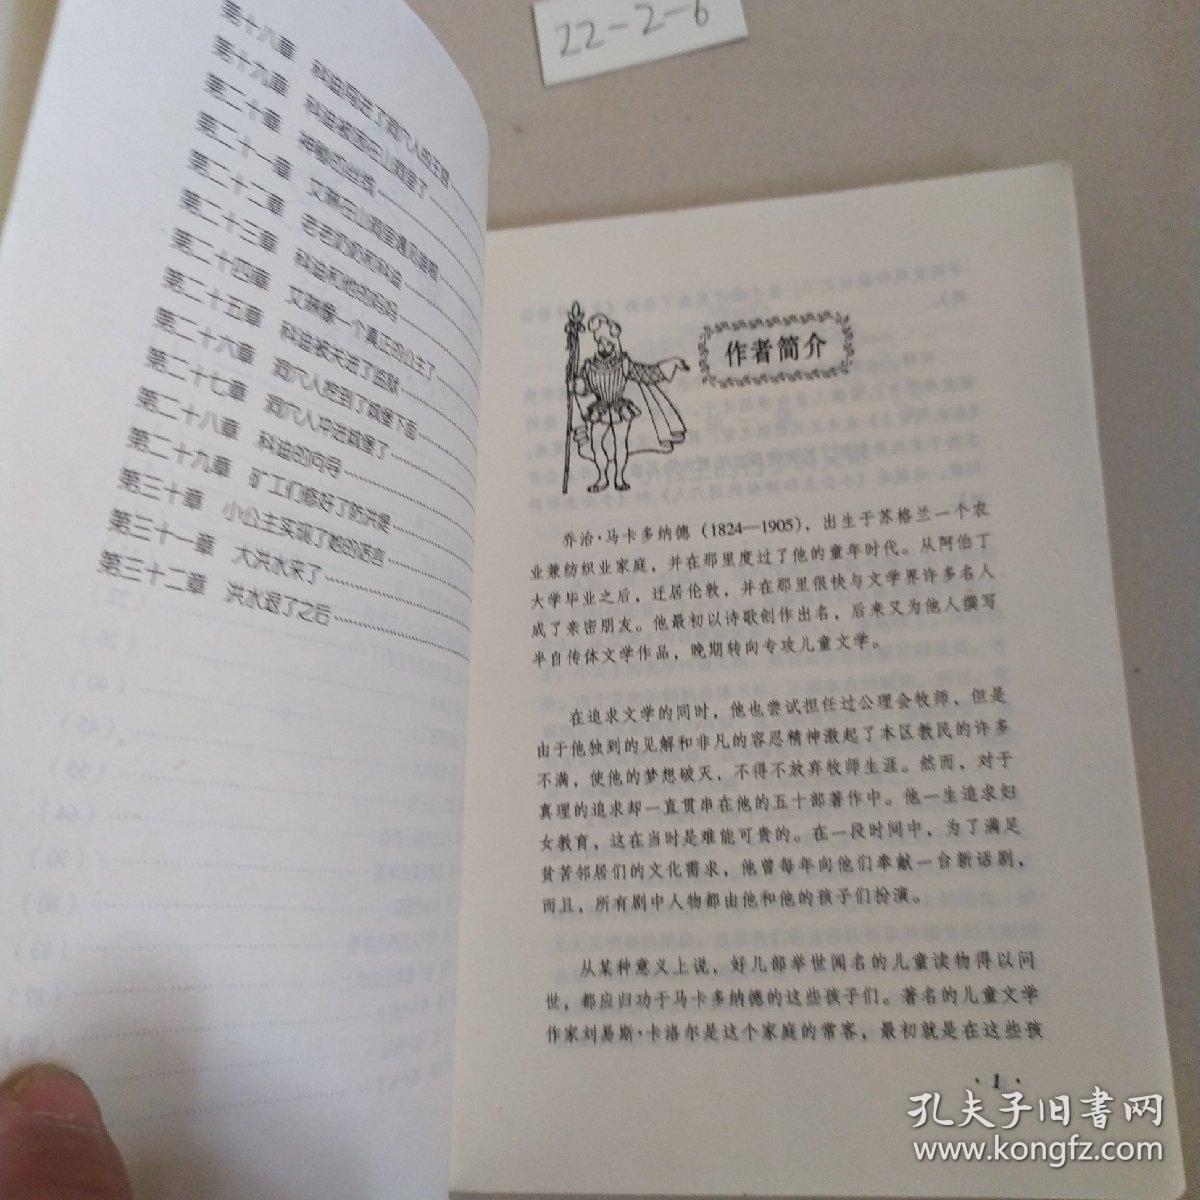 22-2-6
第十八章 科迪闯进了洞穴人的王国
第十九章 科迪被困在山洞里了
第二十章 神秘的丝线
第二十一章 艾琳在山洞里遇见
第二十二章 老老奶奶和科迪
第二十三章 科迪和他的妈妈
第二十四章 艾琳像一个真正的公主了
第二十五章 科迪被关进了监狱
第二十六章 洞穴人挖到了城堡下面
第二十七章 洞穴人冲进城堡了
第二十八章 科迪的向导
第二十九章 矿工们修好了防洪堤
第三十章 小公主实现了她的诺言
第三十一章 大洪水来了
第三十二章 洪水退了之后
作者简介
乔治·马卡多纳德(1824—1905),出生于苏格兰一个农
业兼纺织业家庭,并在那里度过了他的童年时代。从阿伯丁
大学毕业之后,迁居伦敦,并在那里很快与文学界许多名人
成了亲密朋友。他最初以诗歌创作出名,后来又为他人撰写
半自传体文学作品,晚期转向专攻儿童文学。
在追求文学的同时,他也尝试担任过公理会牧师,但是
由于他独到的见解和非凡的容忍精神激起了本区教民的许多
不满,使他的梦想破灭,不得不放弃牧师生涯。然而,对于
真理的追求却一直贯串在他的五十部著作中。他一生追求妇
女教育,这在当时是难能可贵的。在一段时间中,为了满足
贫苦邻居们的文化需求,他曾每年向他们奉献一台新话剧,
而且,所有剧中人物都由他和他的孩子们扮演。
从某种意义上说,好几部举世闻名的儿童读物得以问
世,都应归功于马卡多纳德的这些孩子们。著名的儿童文学
作家刘易斯·卡洛尔是这个家庭的常客,最初就是在这些孩
·1·
孔夫子旧书网
www.kongfz.com